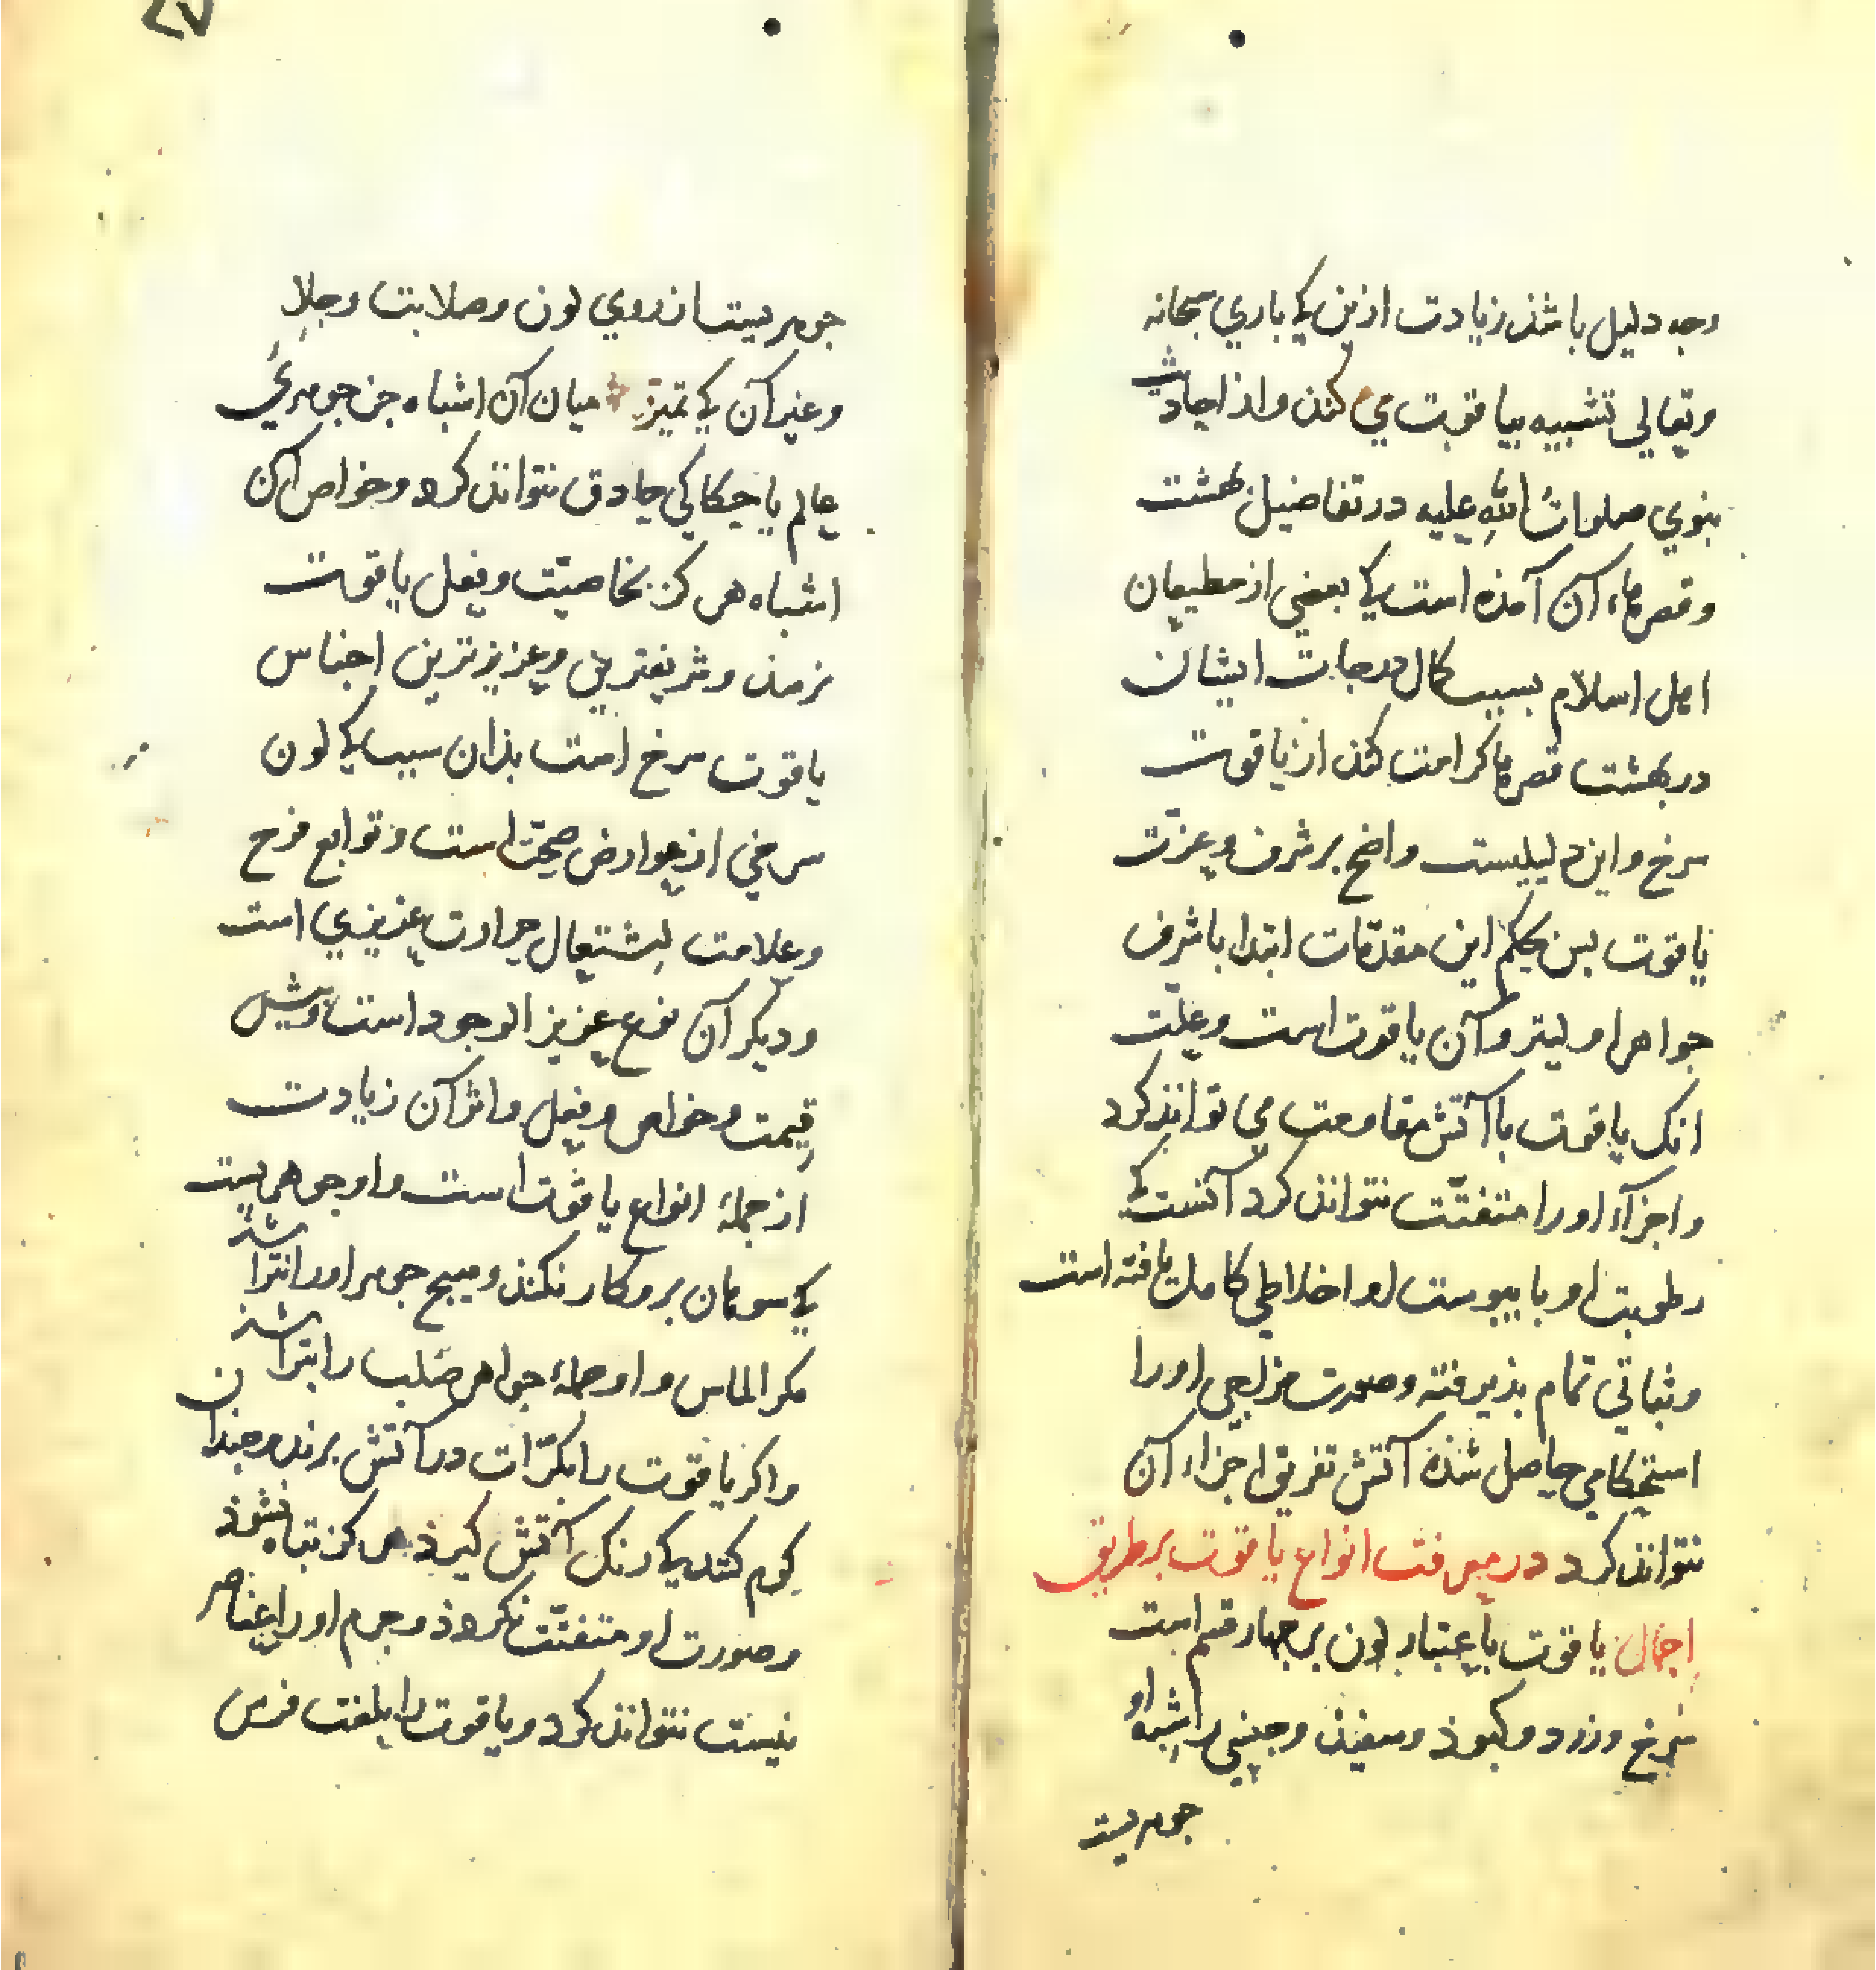 وجه دلیل باشذ زیادت ازین کی باری سبحانه
وتعالی تشبیه بیاقوت می کنذ واز احادیث
نبوی صلوات الله علیه در تفاضیل بهشت
وقصرهاء آن آمذه است کی بعضی از مطیعان
اهل اسلام بسبب کمال درجات ایشان
در بهشت قصرها کرامت کنذ از یاقوت
سرخ واین دلیلیست واضح بر شرف وعزت
یاقوت بس بحکم این مقدمات ابتدا باشرف
جواهر اولیتر وآن یاقوت است وعلت
انک یاقوت با آتش مقاومت می تواند کرد
واجزاء اورا متفتت نتواند کرد آنست کی
رطوبت او با یبوست او اختلاطی کامل یافته است
وثباتی تمام بذیرفته وصورت مزاجی اورا
استحکامی حاصل شذه آتش تفریق اجزاء آن
نتواند کرد در معرفت انواع یاقوت بر طریق
اجمال یاقوت باعتبار لون بر جهار قسم است
سرخ وزرد وکبوذ وسفیذ وجنین اشباه او
جوهریست
٢٧
جوهریست از روی لون وصلابت وجلا
وغیر آن کی تمیز میان آن اشباه جز جوهری
عالم یا حکاکی حاذق نتواند کرد وخواص آن
اشباه هرکز بخاصیت وفعل یاقوت
نرسذ وشریفترین وعزیزترین اجناس
یاقوت سرخ است بذان سبب کی لون
سرخی از عوارض صحت است وتوابع فرح
وعلامت اشتعال حرارت غریزی است
ودیکر آن نوع عزیز الوجود است وبیش
قیمت وخواص وفعل واثر آن زیادت
از جملهٔ انواع یاقوت است واو جوهریست
کی سوهان برو کار نکنذ وهیج جوهر اورا نتراشذ
مکر الماس واو جملهٔ جواهر صلب را بتراشذ
واکر یاقوت را بکرات در آتش برند وجندان
کرم کنند کی رنک آتش کیرذ هرکز تباه نشوذ
وصورت او متفتت نکردذ وجرم اورا عناصر
نیست نتواند کرد ویاقوت را بلغت فرس